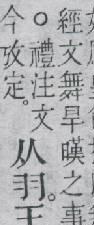 經文舞旱暵之事
○禮注文
今攷定。
从羽。王